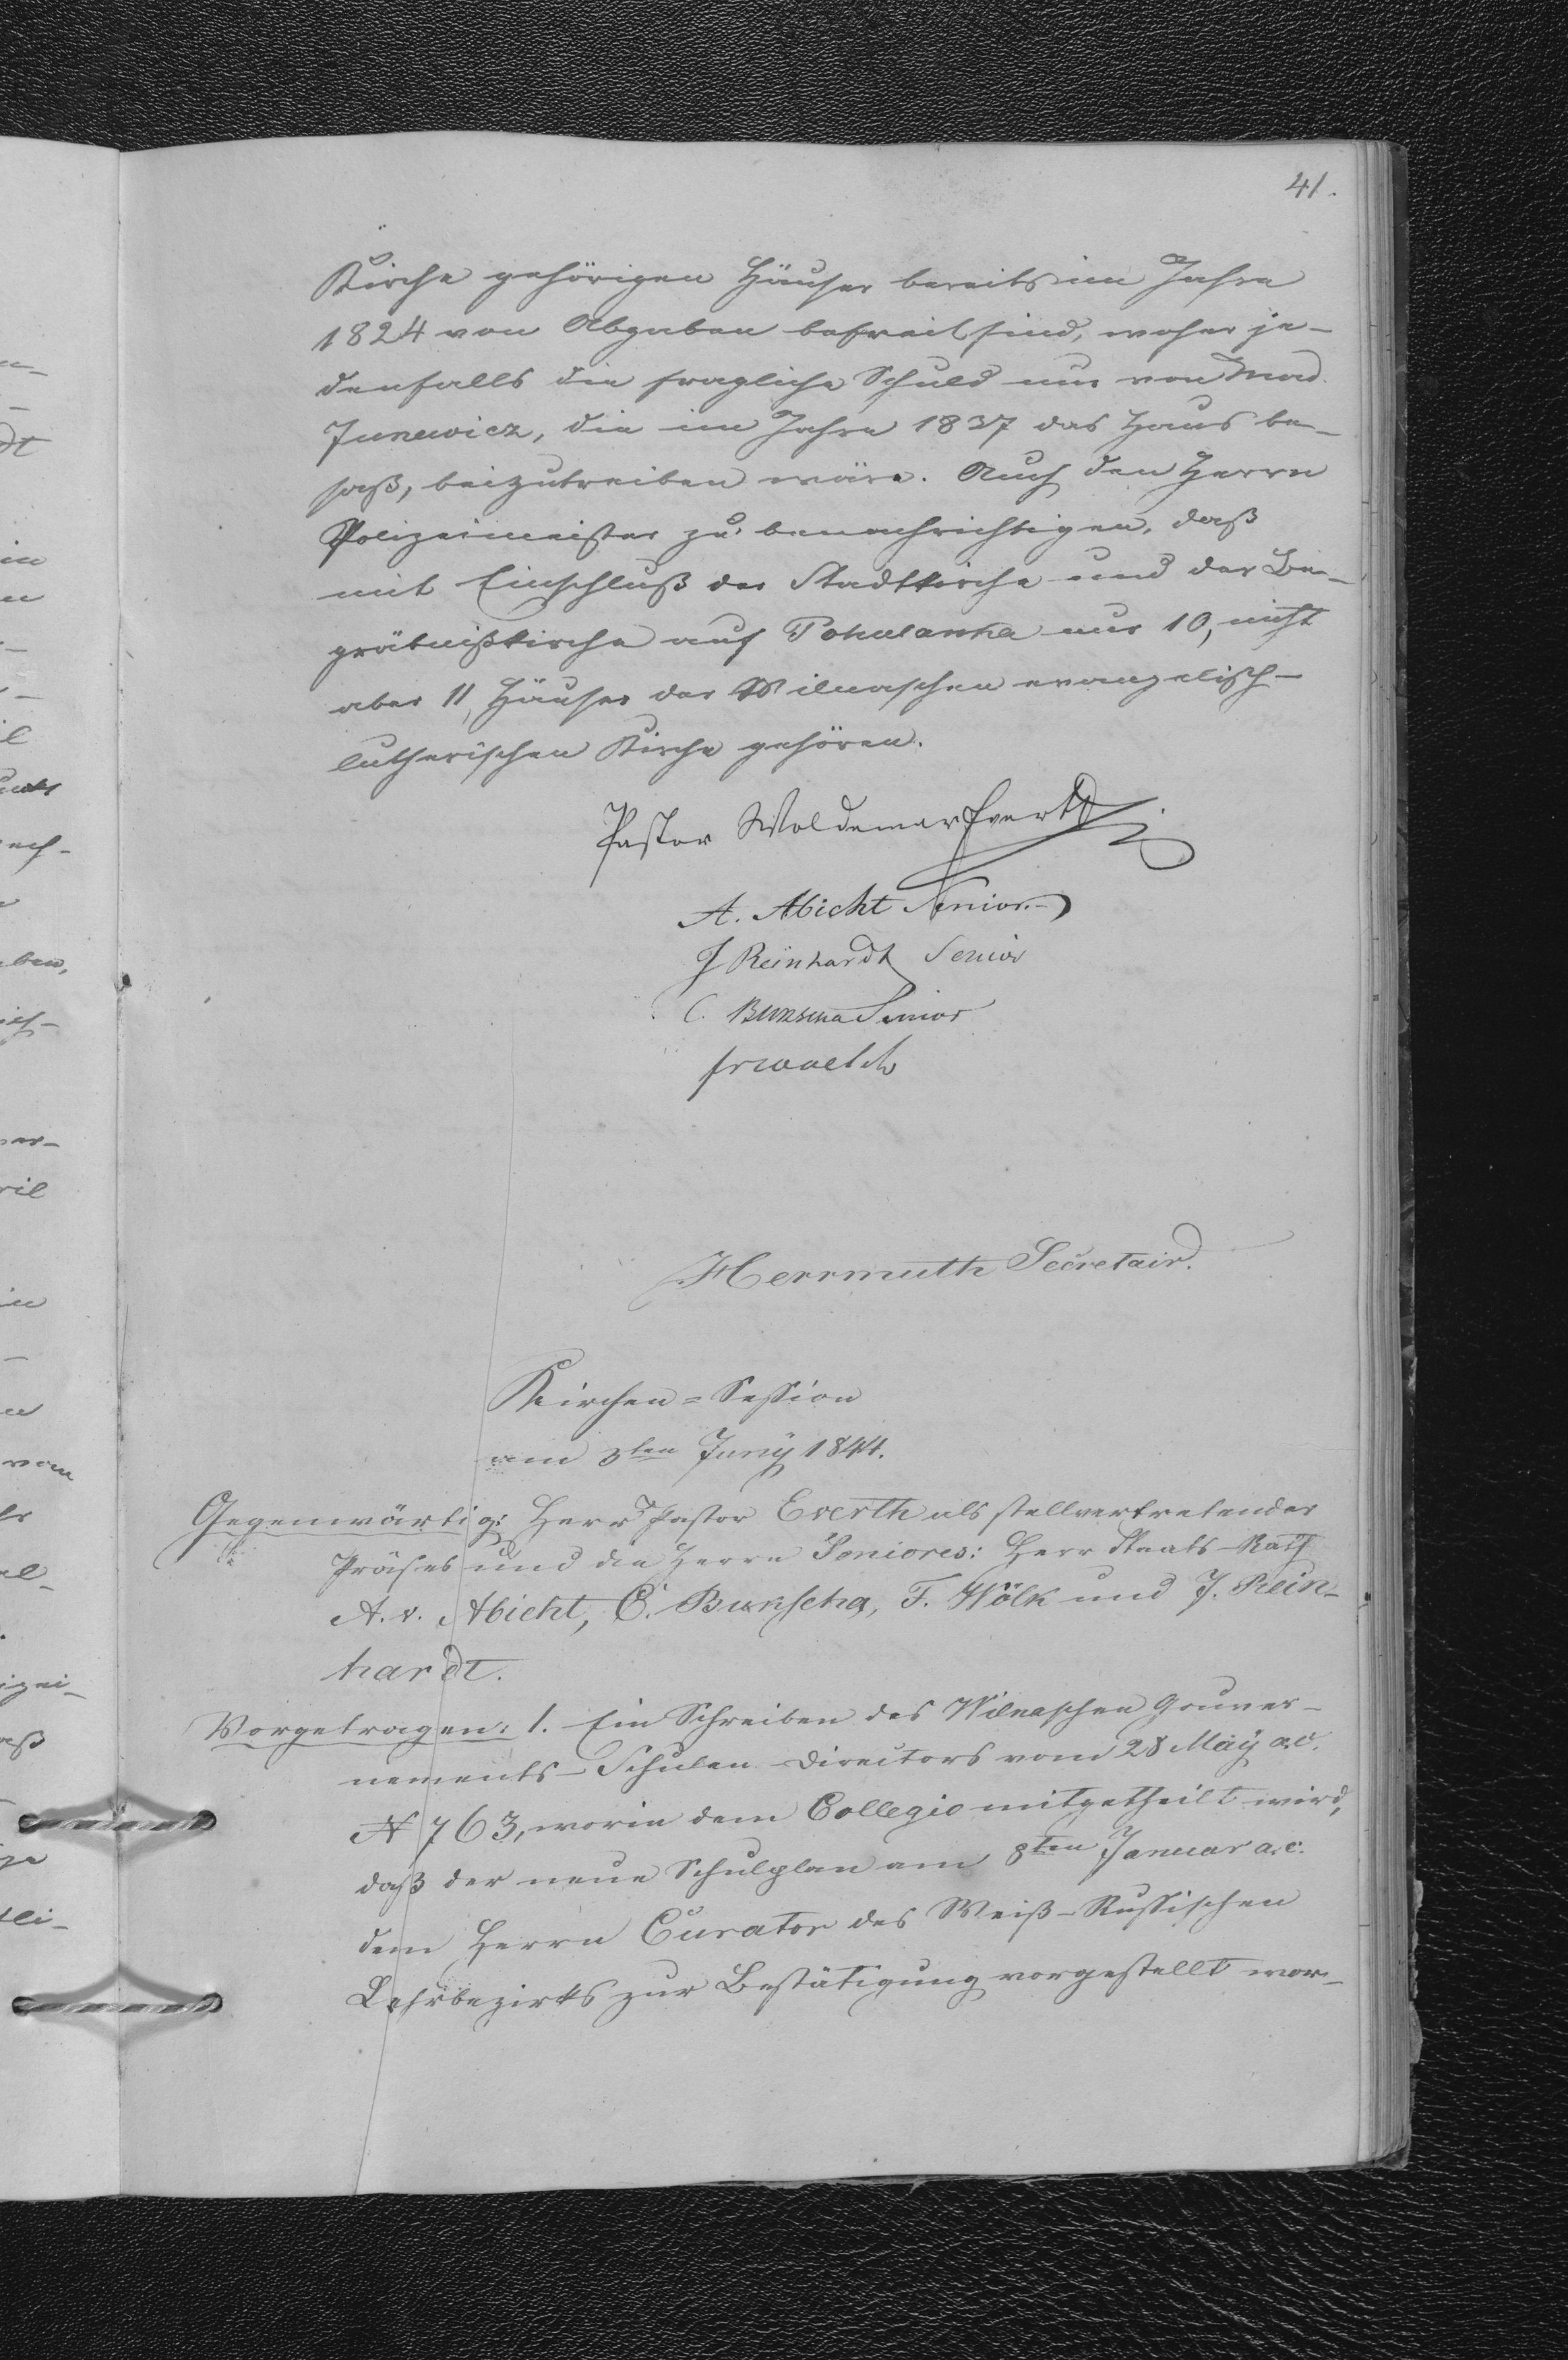 41.
Kirche gehörigen Häuser bereits im Jahre
1824 von Abgaben befreit sind, woher je-
denfalls die fragliche Schuld nur von Mad.
Junewicz, die im Jahre 1837 das Haus be-
saß, beizutreiben wäre. Auch den Herrn
Polizeimeister zu benachrichtigen, daß
mit Einschluß der Stadtkirche und der Be-
gräbnißkirche auf Pohulanka nur 10, nicht
aber 11, Häuser der Wilnaschen evangelisch-
lutherischen Kirche gehören.
Pastor Woldemar Everth
A. Abicht Senior.
J Reinhardt Senior
C. Bunscha Senior
Herrmuth Secretair.
Kirchen = Session
am 3ten Juny 1844.
Gegenwärtig: Herr Pastor Everth als stellvertretender
Präses und die Herrn Seniores: Herr Staats-Rath
A. v. Abicht, C. Bunscha, F. Wölk und J. Rein-
hardt.
Vorgetragen: 1. Ein Schreiben des Wilnaschen Gouver-
nements-Schulen-Directors vom 28 May a.c.
N 763, worin dem Collegio mitgetheilt wird,
daß der neue Schulplan am 8ten Januar a.c.
dem Herrn Curator des Weiß-Russischen
Lehrbezirks zur Bestätigung vorgestellt wor-